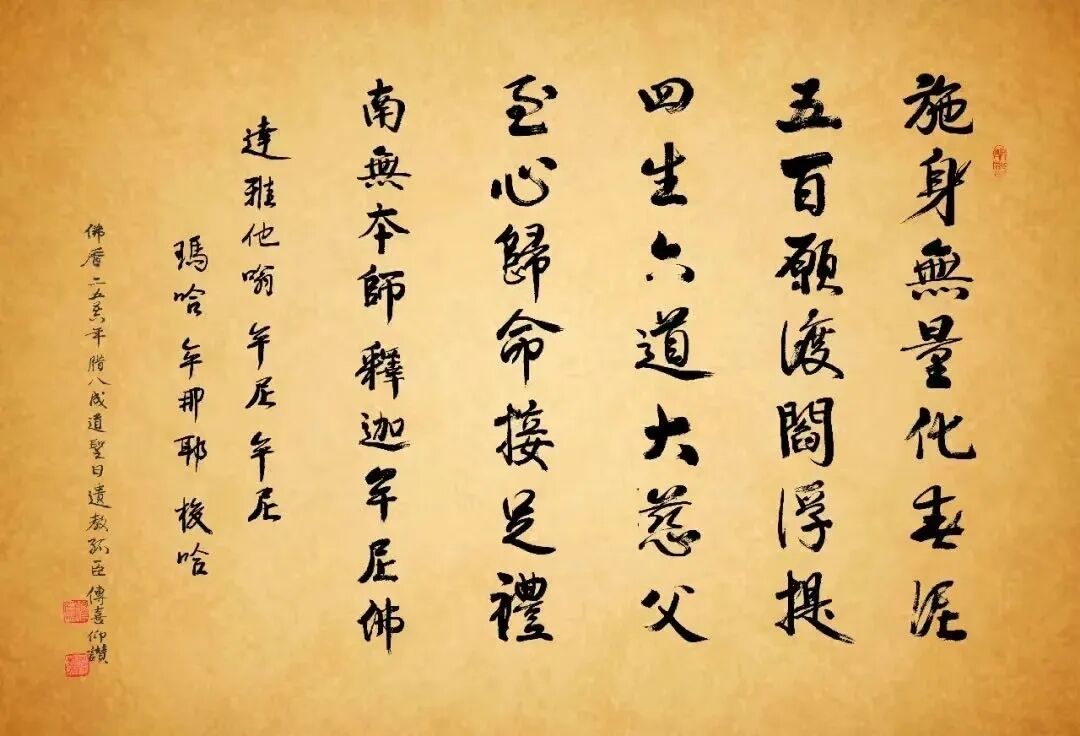 施身無量化春泥
五百願渡閻浮提
四生六道大慈父
至心歸命接足禮
南無本師釋迦牟尼佛
達雅他嗡牟尼牟尼
瑪哈牟那耶梭哈
佛曆二五年腊八成道聖日遺教孤臣傳喜仰讚